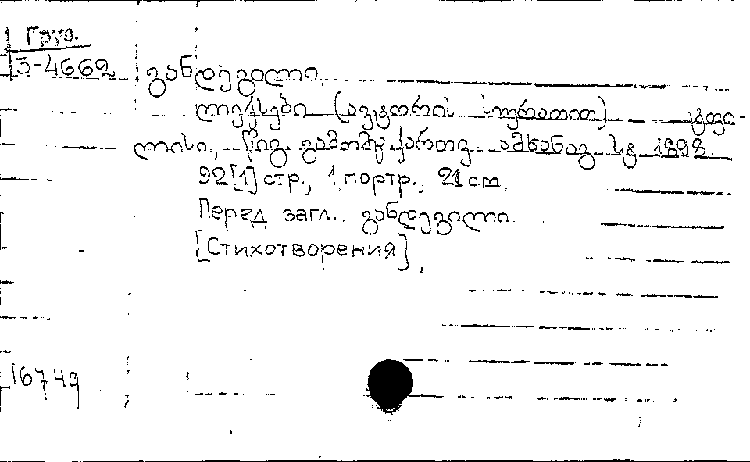 Груз.
3-4662 განდეგილი.
ლექსები (ავტორის სურათით) ტფი-
ლისი, წიგ. გამომც. ქართვ. ამხანაგ. სტ. 1892
92[1] стр., 1 портр., 21 см.
Перед загл.: განდეგილი.
[Стихотворения]
16749